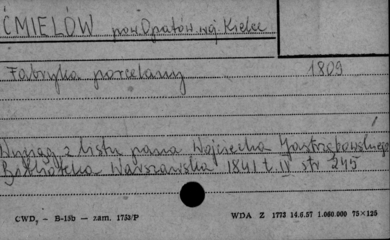 ĆMIELÓW pow. Opatów woj. Kielce
Fabryka porcelany 1809
Wyciąg z listu pana Wojciecha Jastrzębowskiego
Biblioteka Warszawska 1841 t. III str 245
CWD, - B-15b - zam. 1753/P WDA Z 1773 14.6.57 1.000.000 75×125